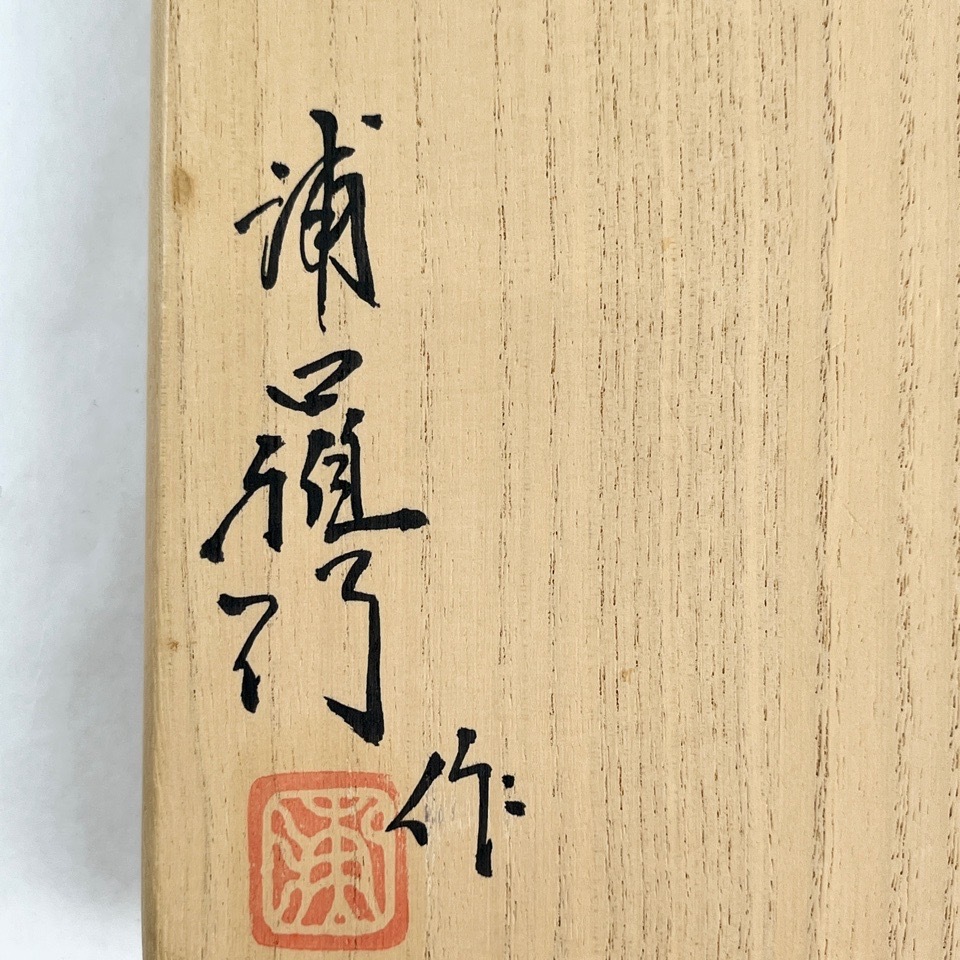 浦口雅行 作
浦